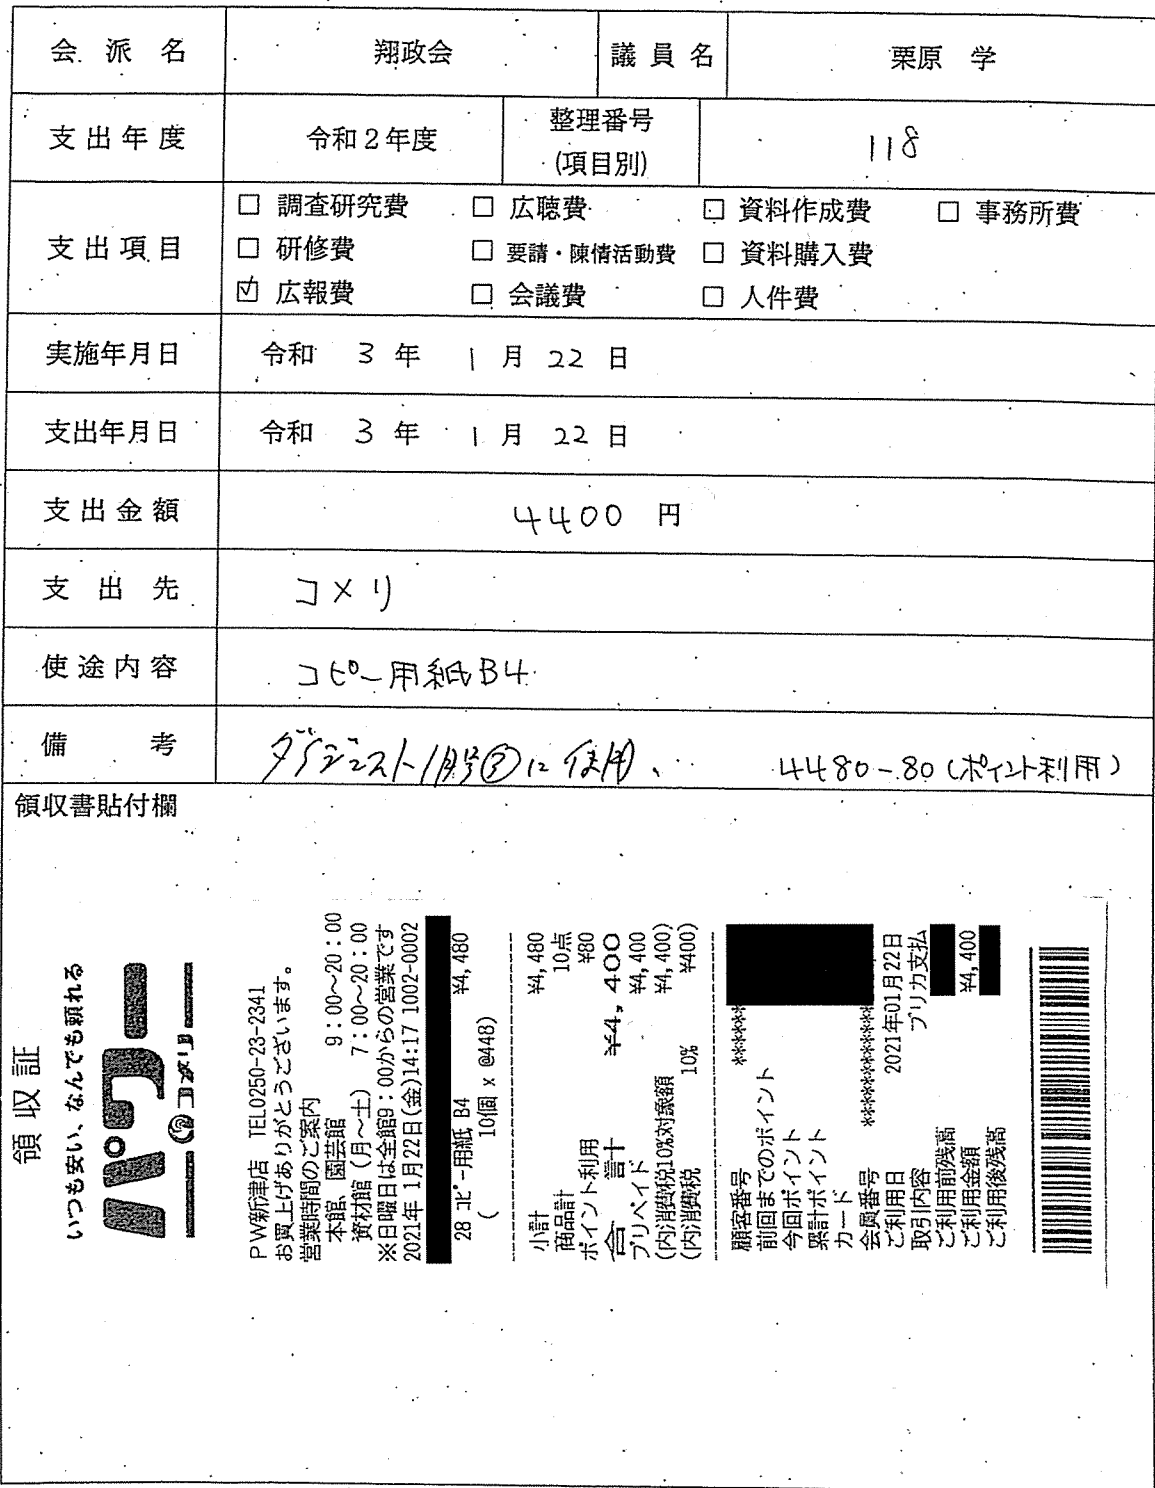 会派名 翔政会 議員名 栗原 学
支出年度 令和2年度 整理番号(項目別) 118
支出項目
□ 調査研究費 □ 広聴費 □ 資料作成費 □ 事務所費
□ 研修費 □ 要請・陳情活動費 □ 資料購入費
☑ 広報費 □ 会議費 □ 人件費
実施年月日 令和 3 年 1 月 22 日
支出年月日 令和 3 年 1 月 22 日
支出金額 4400 円
支出先 コメリ
使途内容 コピー用紙B4
備考 ダイジェスト1月号③に使用、 4480-80(ポイント利用)
領収書貼付欄
領収証
いつも安い、なんでも頼れる
パワー
コメリ
PW新津店 TEL0250-23-2341
お買上げありがとうございます。
営業時間のご案内
本館、園芸館 9:00~20:00
資材館(月~土) 7:00~20:00
※日曜日は全館9:00からの営業です
2021年 1月22日(金)14:17 1002-0002
28 コピー用紙 B4 ¥4,480
( 10個 x @448)
小計 ¥4,480
商品計 10点
ポイント利用 ¥80
合 計 ¥4,400
プリペイド ¥4,400
(内消費税10%対象額 ¥4,400)
(内消費税 10% ¥400)
顧客番号 ******
前回までのポイント
今回ポイント
累計ポイント
カード
会員番号 ************
ご利用日 2021年01月22日
取引内容 プリカ支払
ご利用前残高
ご利用金額 ¥4,400
ご利用後残高